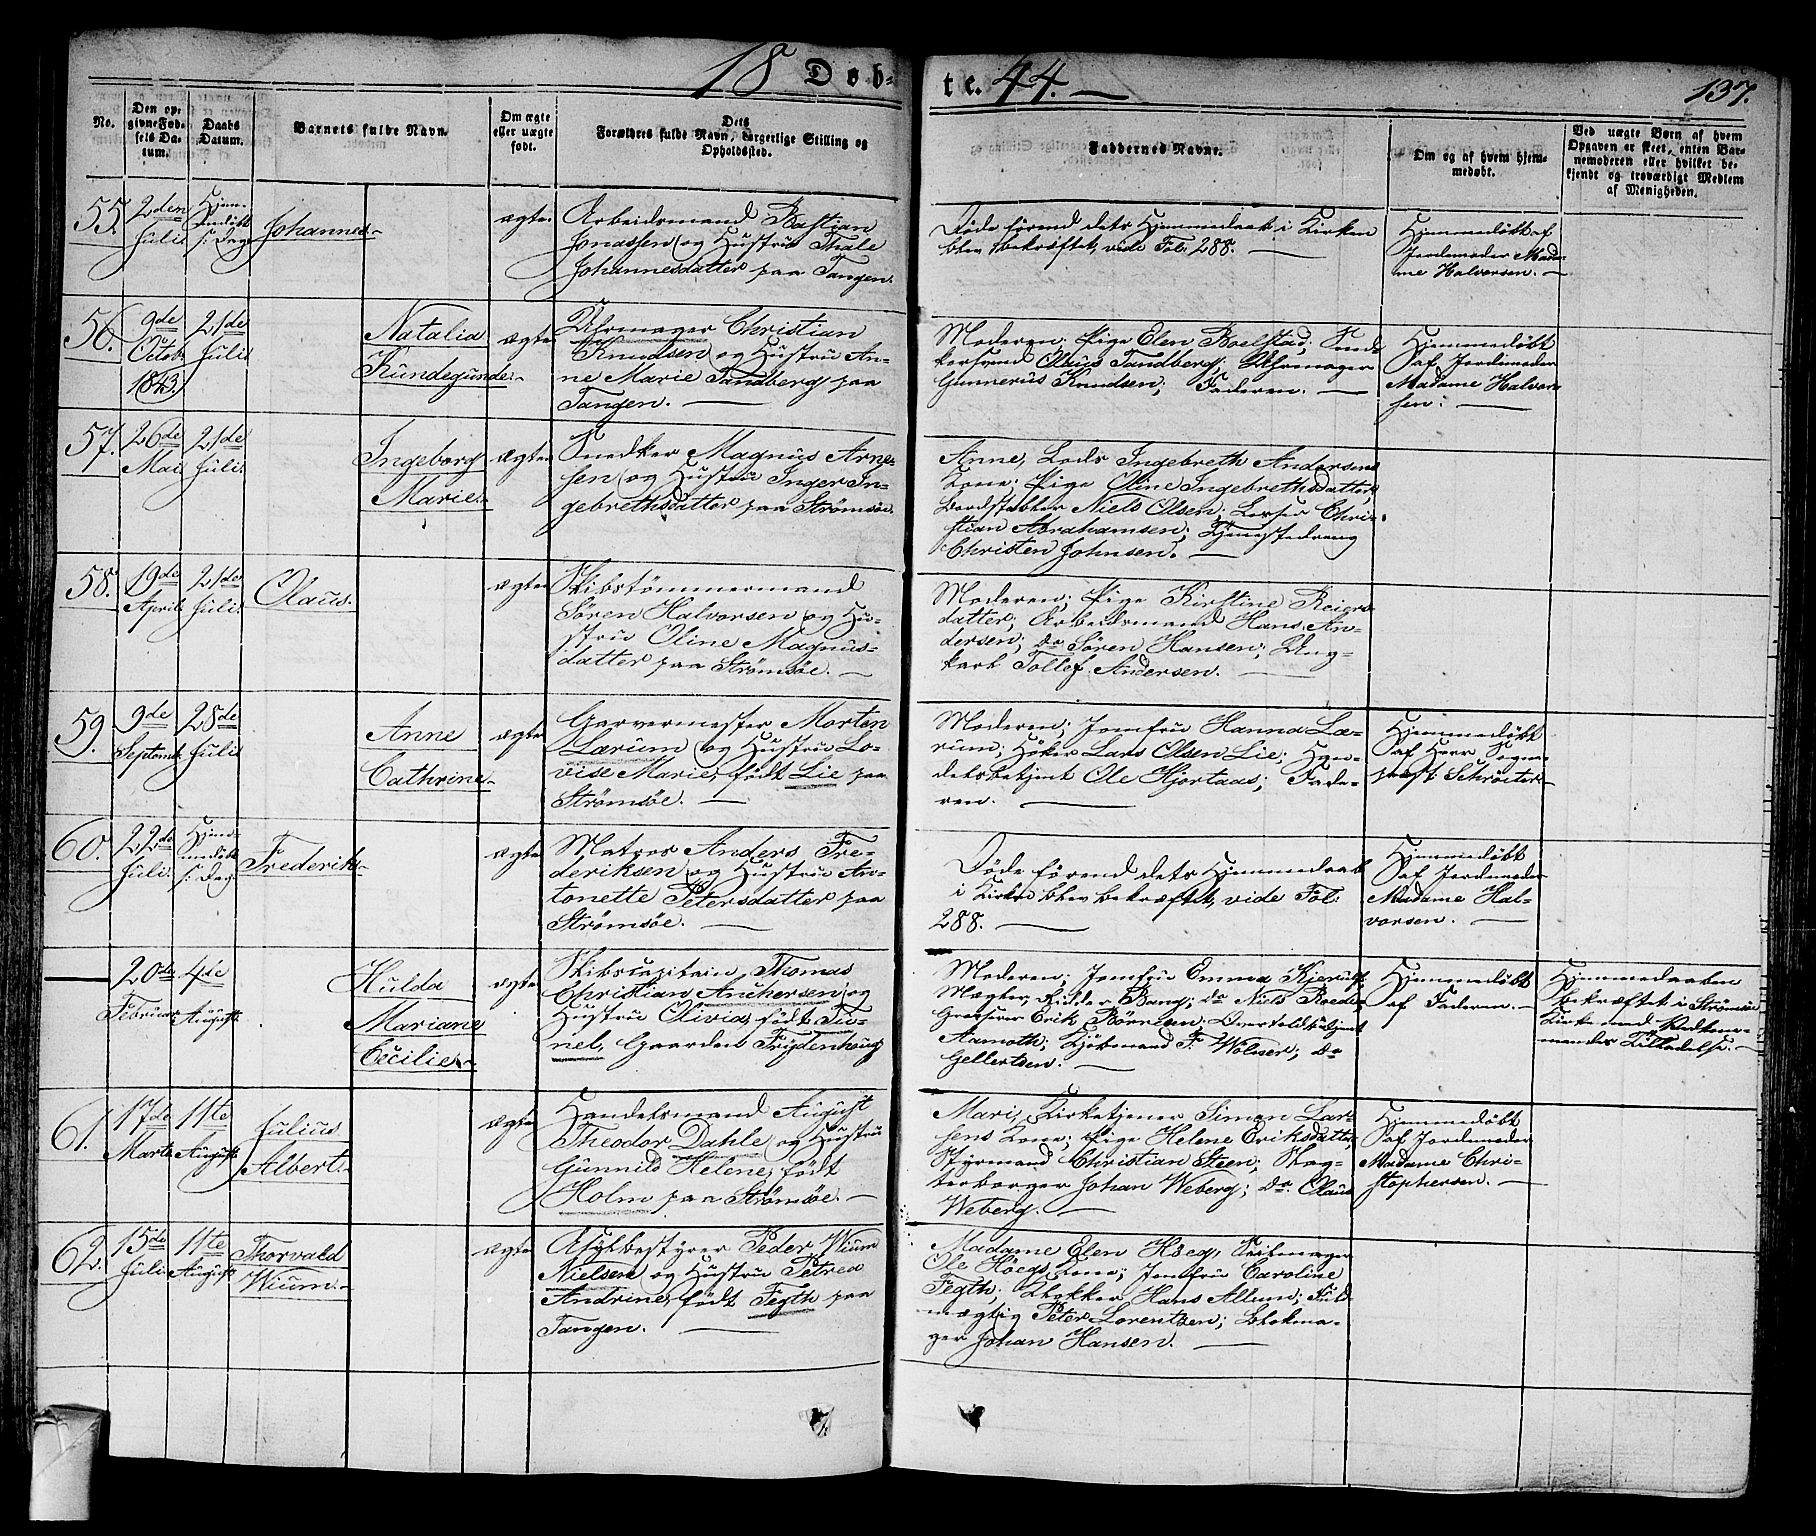 18 Døb-
te. 44.
137.
No.
Den op-
givne Fød-
sels Da-
tum.
Daabs
Datum.
Barnets fulde Navn.
Om ægte
eller uægte
født.
Dets
Forældres fulde Navn, borgerlige Stilling og
Opholdssted.
Faddernes Navne.
Om og af hvem hjem-
medøbt.
Ved uægte Børn af hvem
Opgaven er skeet, enten Bar-
nemoderen eller hvilket be-
kjendt og troværdigt Medlem
af Menigheden.
55.
2den
Juli
Hjem-
medøbt
s: Dag
Johannes.
ægte
Arbeidsmand Bastjan
Jonassen og Hustru Thale
Johannesdatter paa Tangen.
Døde førend dets Hjemmedaab i Kirken
blev bekræftet, vide Fol. 288.
Hjemmedøbt af
Jordemoder Mada-
me Halvorsen.
56.
9de
Octob.
1843.
21de
Juli
Natalia
Kundegunde.
ægte
Uhrmager Christian
Knudsen og Hustru An-
ne Marie Sandberg paa
Tangen.
Moderen; Pige Elen Boelstad; Sned-
kersvend Olaus Sandberg; Uhrmager
Gunnerus Knudsen; Faderen.
Hjemmedøbt
af Jordemoder
Madame Halvor-
sen.
57.
26de
Mai
21de
Juli
Ingeborg
Marie.
ægte
Snedker Magnus Arne-
sen og Hustru Inger In-
gebrethsdatter paa Strømsøe.
Anne, Lods Ingebreth Andersens
Kone; Pige Oline Ingebrethsdatter;
Bordstabler Niels Olsen; Losser Chri-
stian Abrahamsen; Tjenestedreng
Christen Johnsen.
58.
19de
April
21de
Juli
Olaus.
ægte
Skibstømmermand
Søren Halvorsen og Hu-
stru Oline Magnus-
datter paa Strømsøe.
Moderen; Pige Kirstine Reiers-
datter; Arbeidsmand Hans An-
dersen; do Søren Hansen; Ung-
karl Tollef Andersen.
59.
9de
Septemb.
28de
Juli
Anne
Cathrine.
ægte
Garvermester Morten
Lærum og Hustru Lo-
vise Marie, født Lie paa
Strømsøe.
Moderen; Jomfru Hanna Læ-
rum; Høker Lars Olsen Lie; Han-
delsbetjent Ole Hjortaas; Fade-
ren.
Hjemmedøbt
af Herr Sogne-
præst Schrøeter
60.
22de
Juli.
Hjem-
medøbt
s: Dag
Frederik.
ægte
Matros Anders Fre-
deriksen og Hustru An-
tonette Petersdatter paa
Strømsøe.
Døde førend dets Hjemmedaab
i Kirken blev bekræftet, vide Fol:
288.
Hjemmedøbt
af Jordemoder
Madame Hal-
vorsen.
20de
Februar
4de
August
Hulda
Mariane
Cecilie.
ægte
Skibscapitain Thomas
Christian Anchersen og
Hustru Olivia, født Tu-
nel, Gaarden Frydenhaug
Moderen; Jomfru Emma Kjerulf;
Mægler Ridder Bang; do Niels Roed;
Grosserer Erik Børresen; Overtoldbetjent
Aamoth; Kjøbmand F. Wolner; do
Gellertsen.
Hjemmedøbt
af Faderen.
Hjemmedaaben
bekræftet i Strømsøe
Kirke med Vedkom-
mendes Tilladelse.
61.
17de
Marts
11te
August
Julius
Albert.
ægte
Handelsmand August
Theodor Dahle og Hustru
Gunnild Helene, født
Holm paa Strømsøe.
Mari, Kirketjener Simon Lar-
sens Kone; Pige Helene Eriksdatter;
Styrmand Christian Steen; Skag-
terborger Johan Weberg; do Olaus
Weberg.
Hjemmedøbt
af Jordemoder
Madame Chri-
stophersen.
62.
15de
Juli
11te
August
Thorvald
Wium.
ægte
Asylbestyrer Peder Wium
Nielsen og Hustru Petrea
Andrine, født Fegth paa
Tangen.
Madame Elen Høeg, Seilmager
Ole Høegs Kone; Jomfru Caroline
Fegth; Klokker Hans Allum; Fuld-
mægtig Peter Lorentzen; Blokma-
ger Johan Hansen.